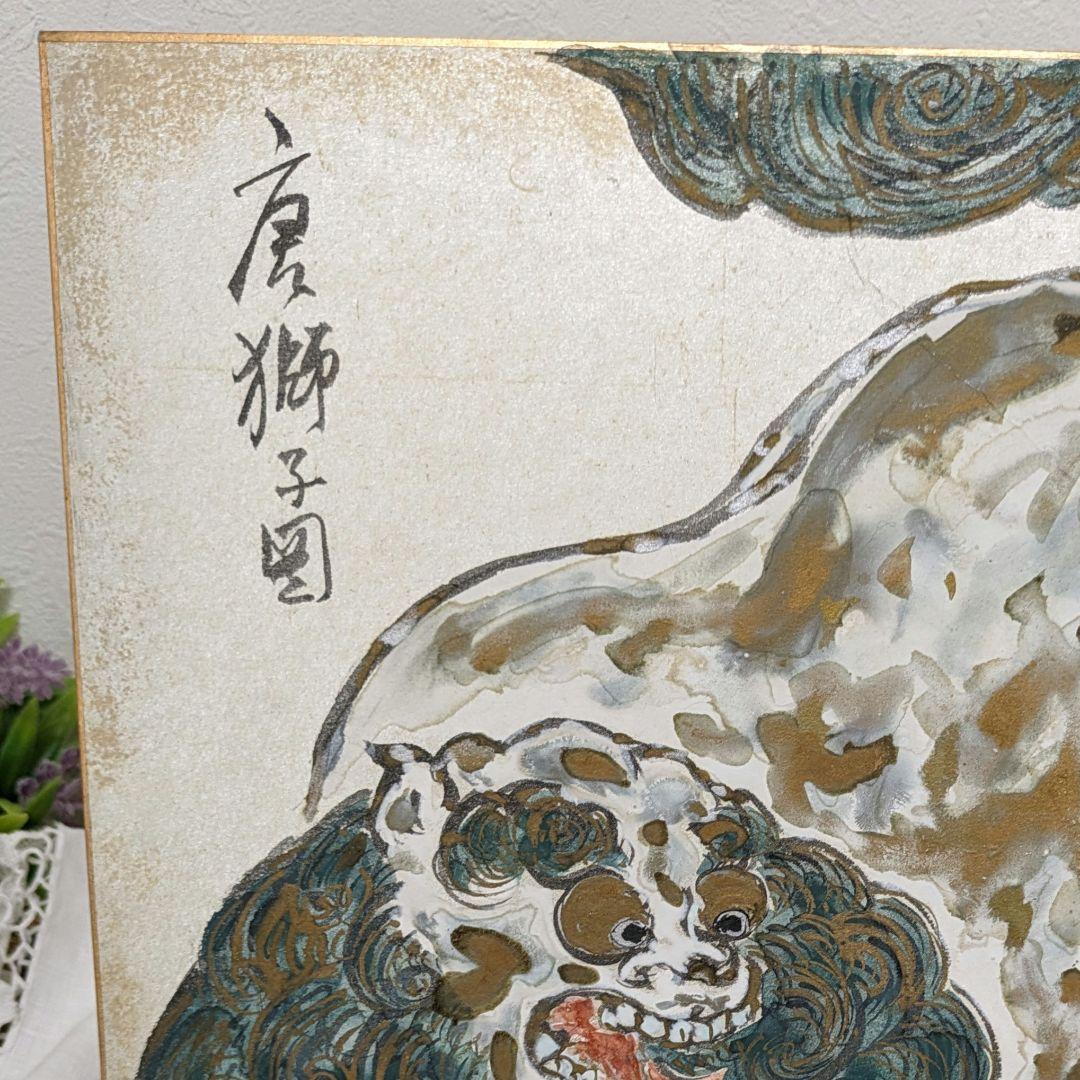 唐獅子図